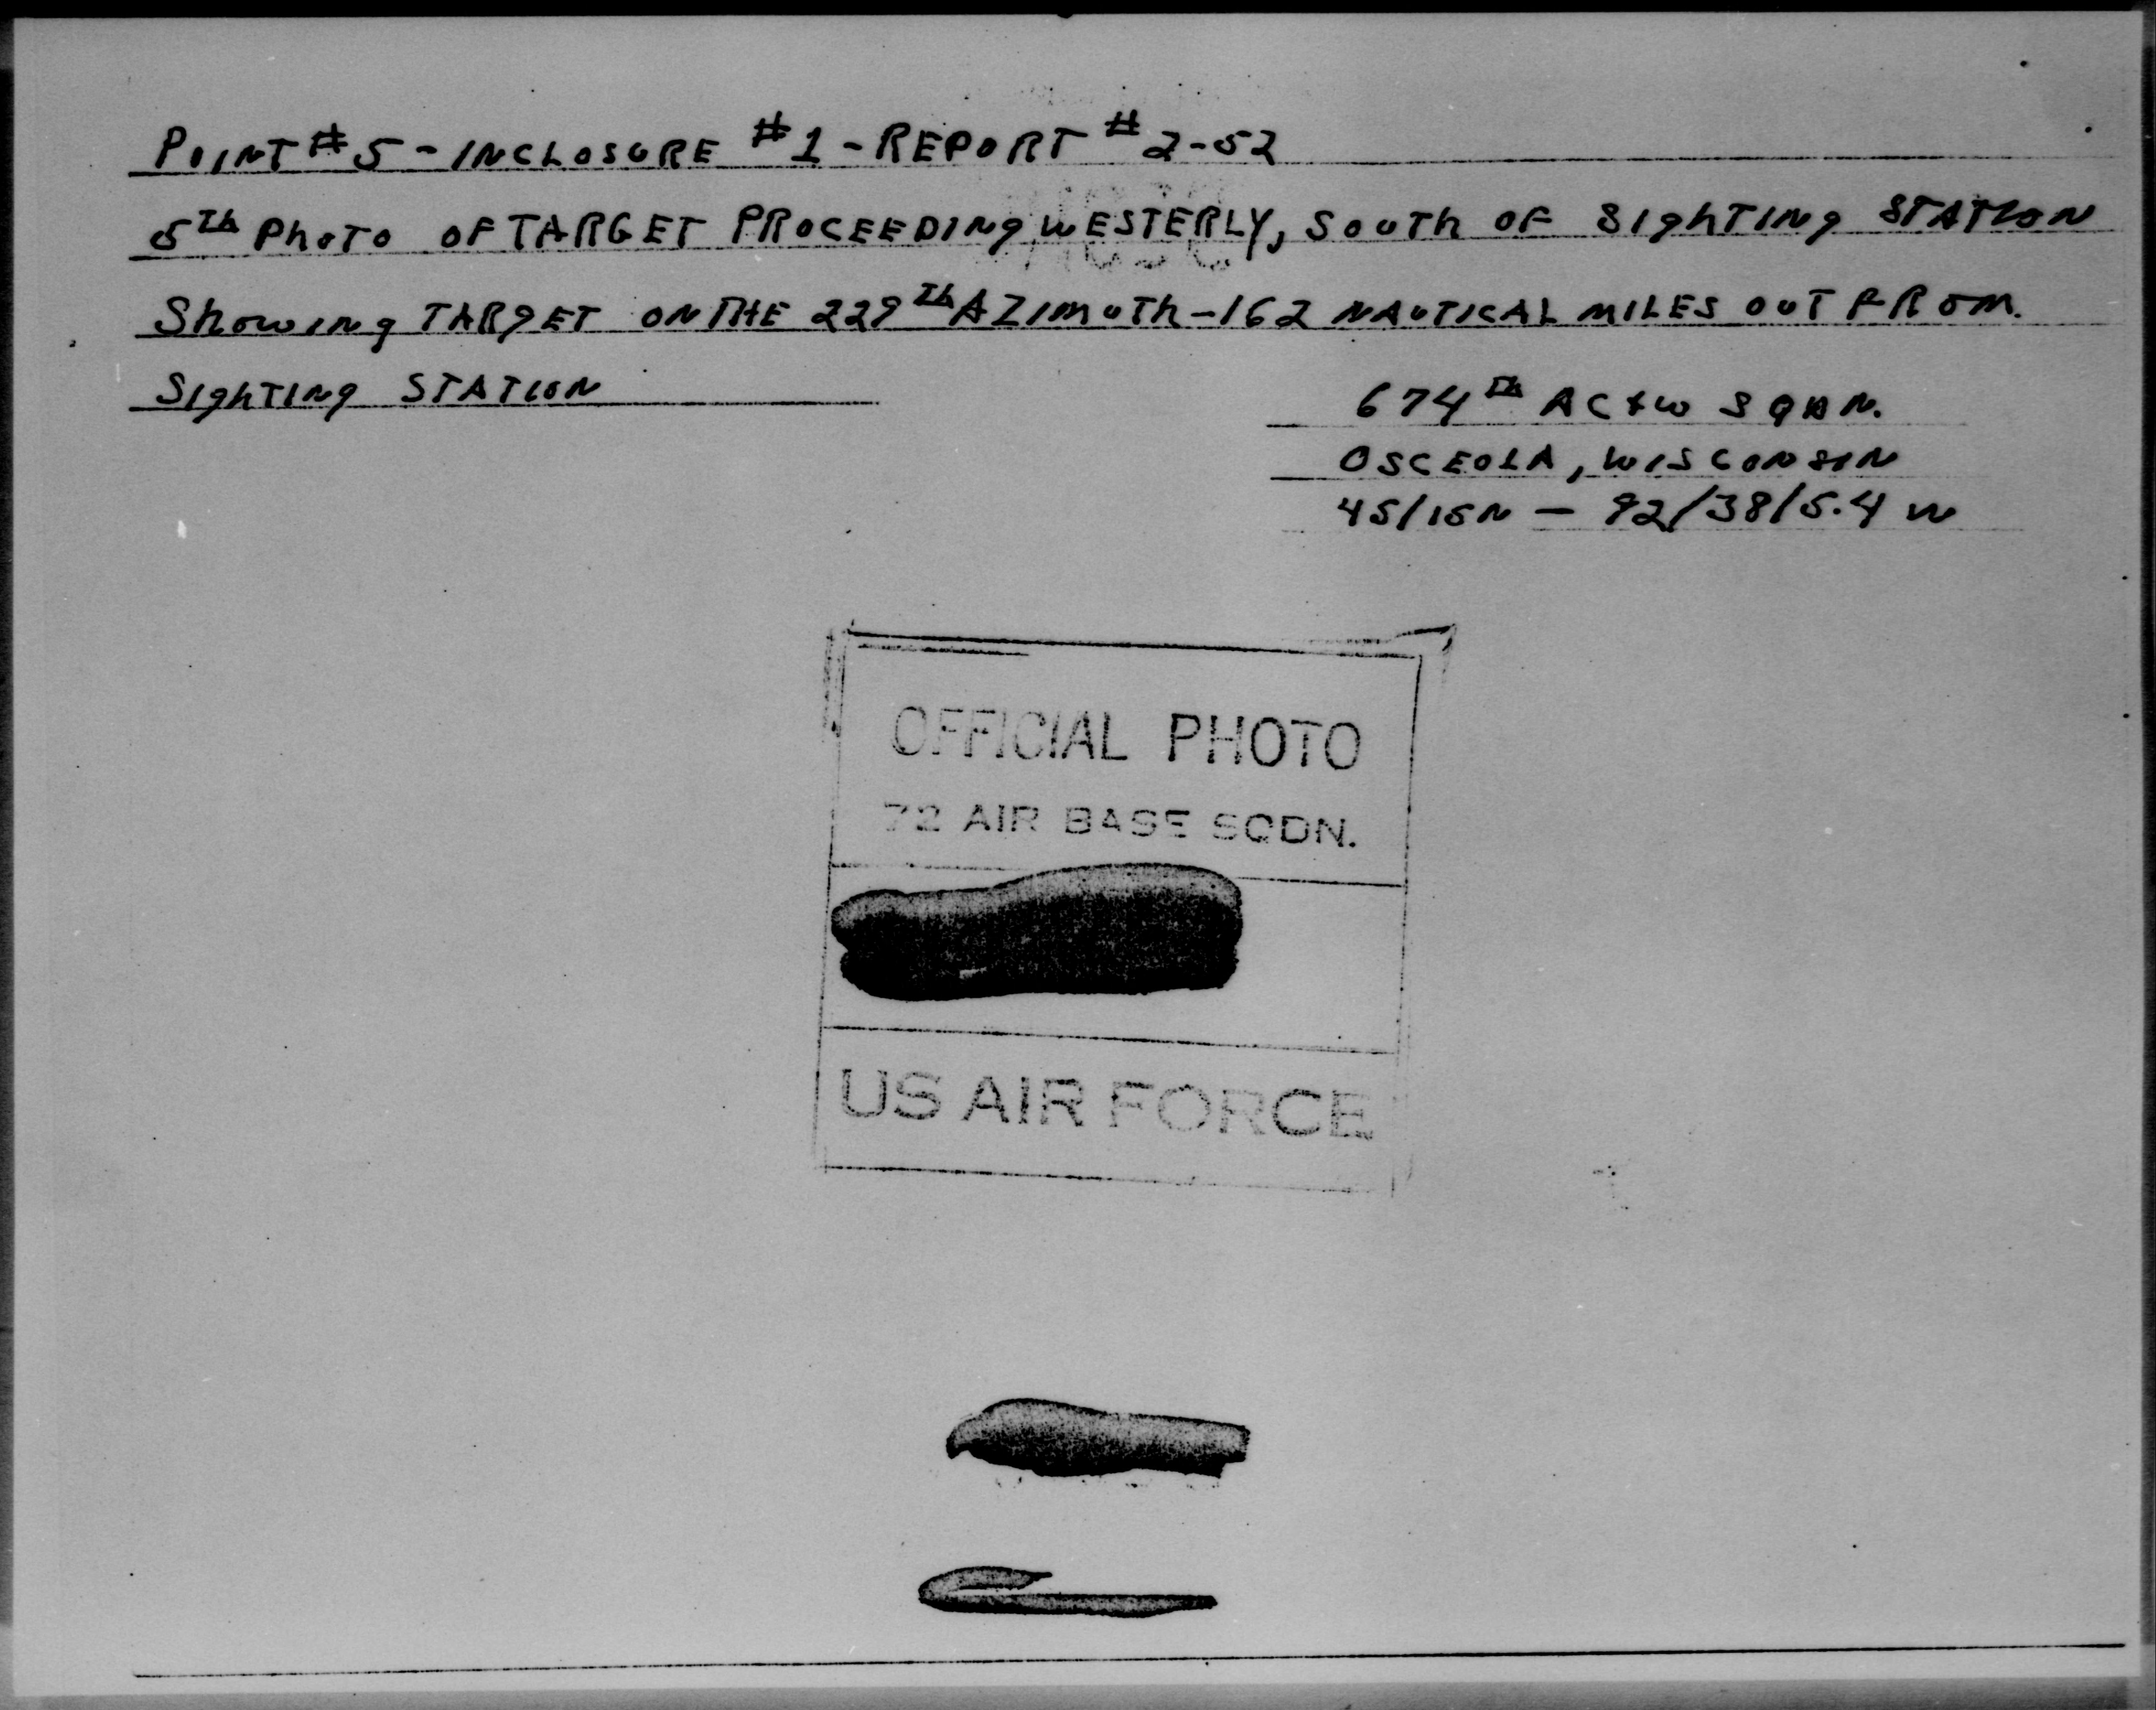 POINT # 5 - INCLOSURE #1 - REPORT # 2-52
5Th PhOTO OF TARGET PROCEEDINg WESTERLY, SOUTh OF SIghTINg STATION
ShowINg TARgET ON THE 229Th AZIMUTh - 162 NAUTICAL MILES OUT FROM.
SIghTINg STATION
674Th AC+W SQDN.
OSCEOLA, WISCONSIN
45/15N — 92/38/5.4 W
OFFICIAL PHOTO
72 AIR BASE SQDN.
US AIR FORCE